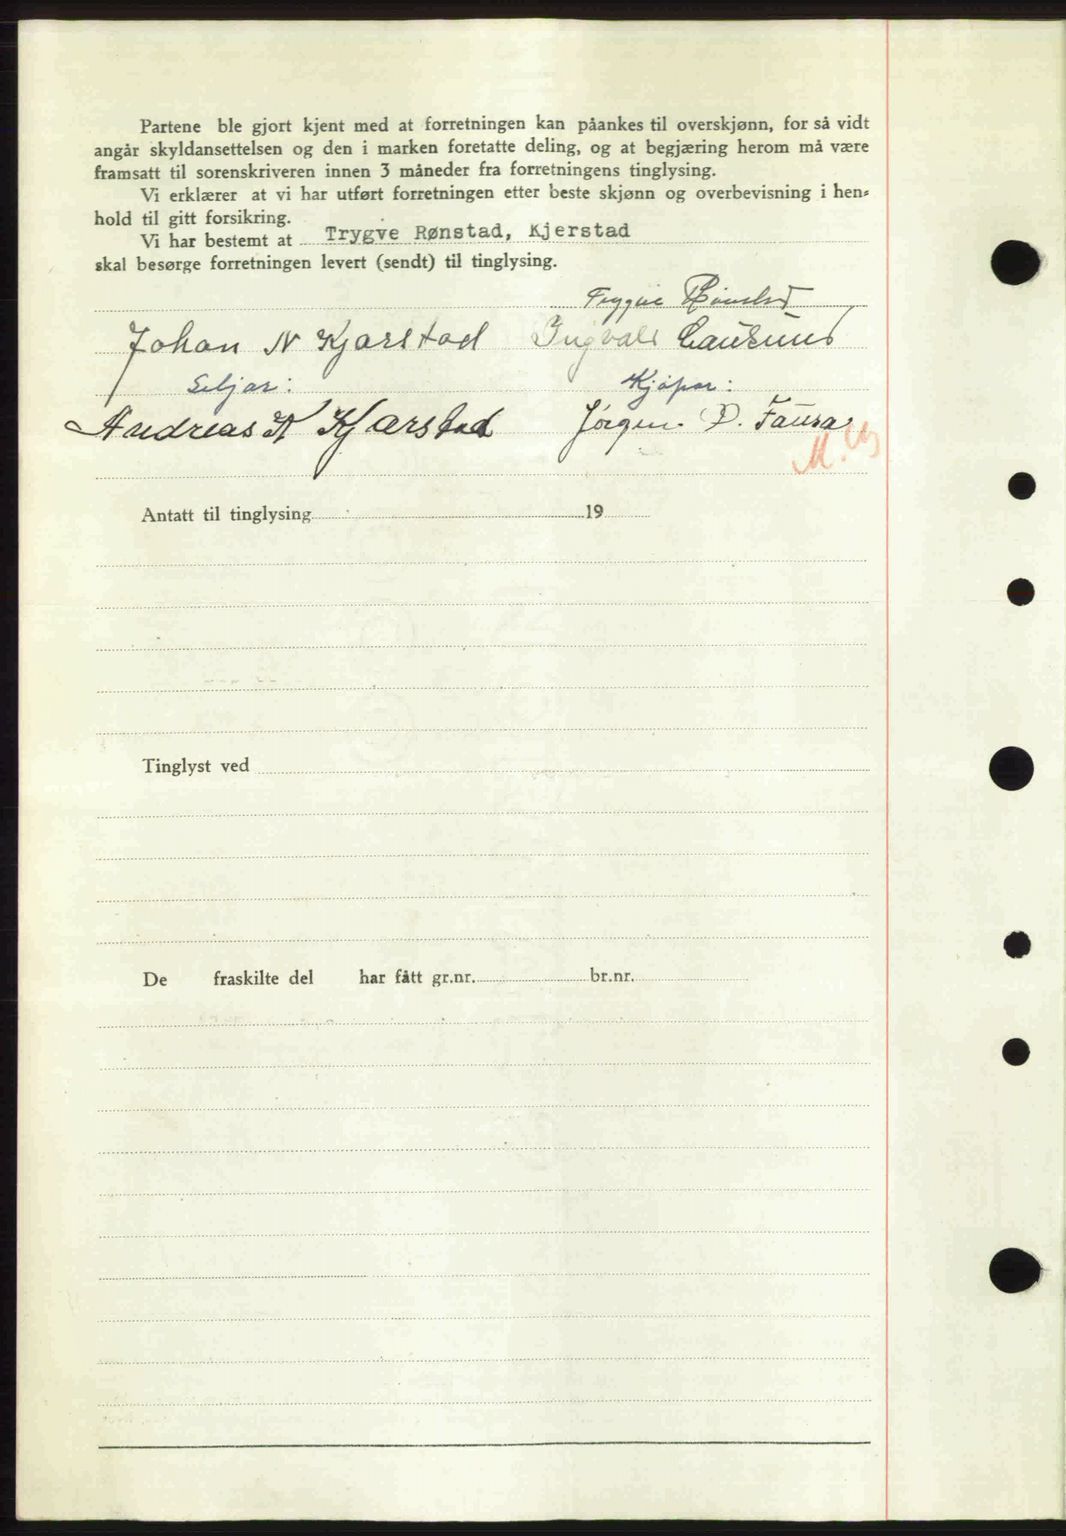 Partene ble gjort kjent med at forretningen kan påankes til overskjønn, for så vidt
angår skyldansettelsen og den i marken foretatte deling, og at begjæring herom må være
framsatt til sorenskriveren innen 3 måneder fra forretningens tinglysing.
Vi erklærer at vi har utført forretningen etter beste skjønn og overbevisning i hen-
hold til gitt forsikring.
Vi har bestemt at Trygve Rønstad, Kjerstad
skal besørge forretningen levert (sendt) til tinglysing.
Trygve Rønstad
Johan N Kjærstad Ingvald Laursund
Seljar: Kjøpar:
Andreas K Kjærstad Jørgen P. Fausa
Antatt til tinglysing 19
Tinglyst ved
De fraskilte del har fått gr.nr. br.nr.